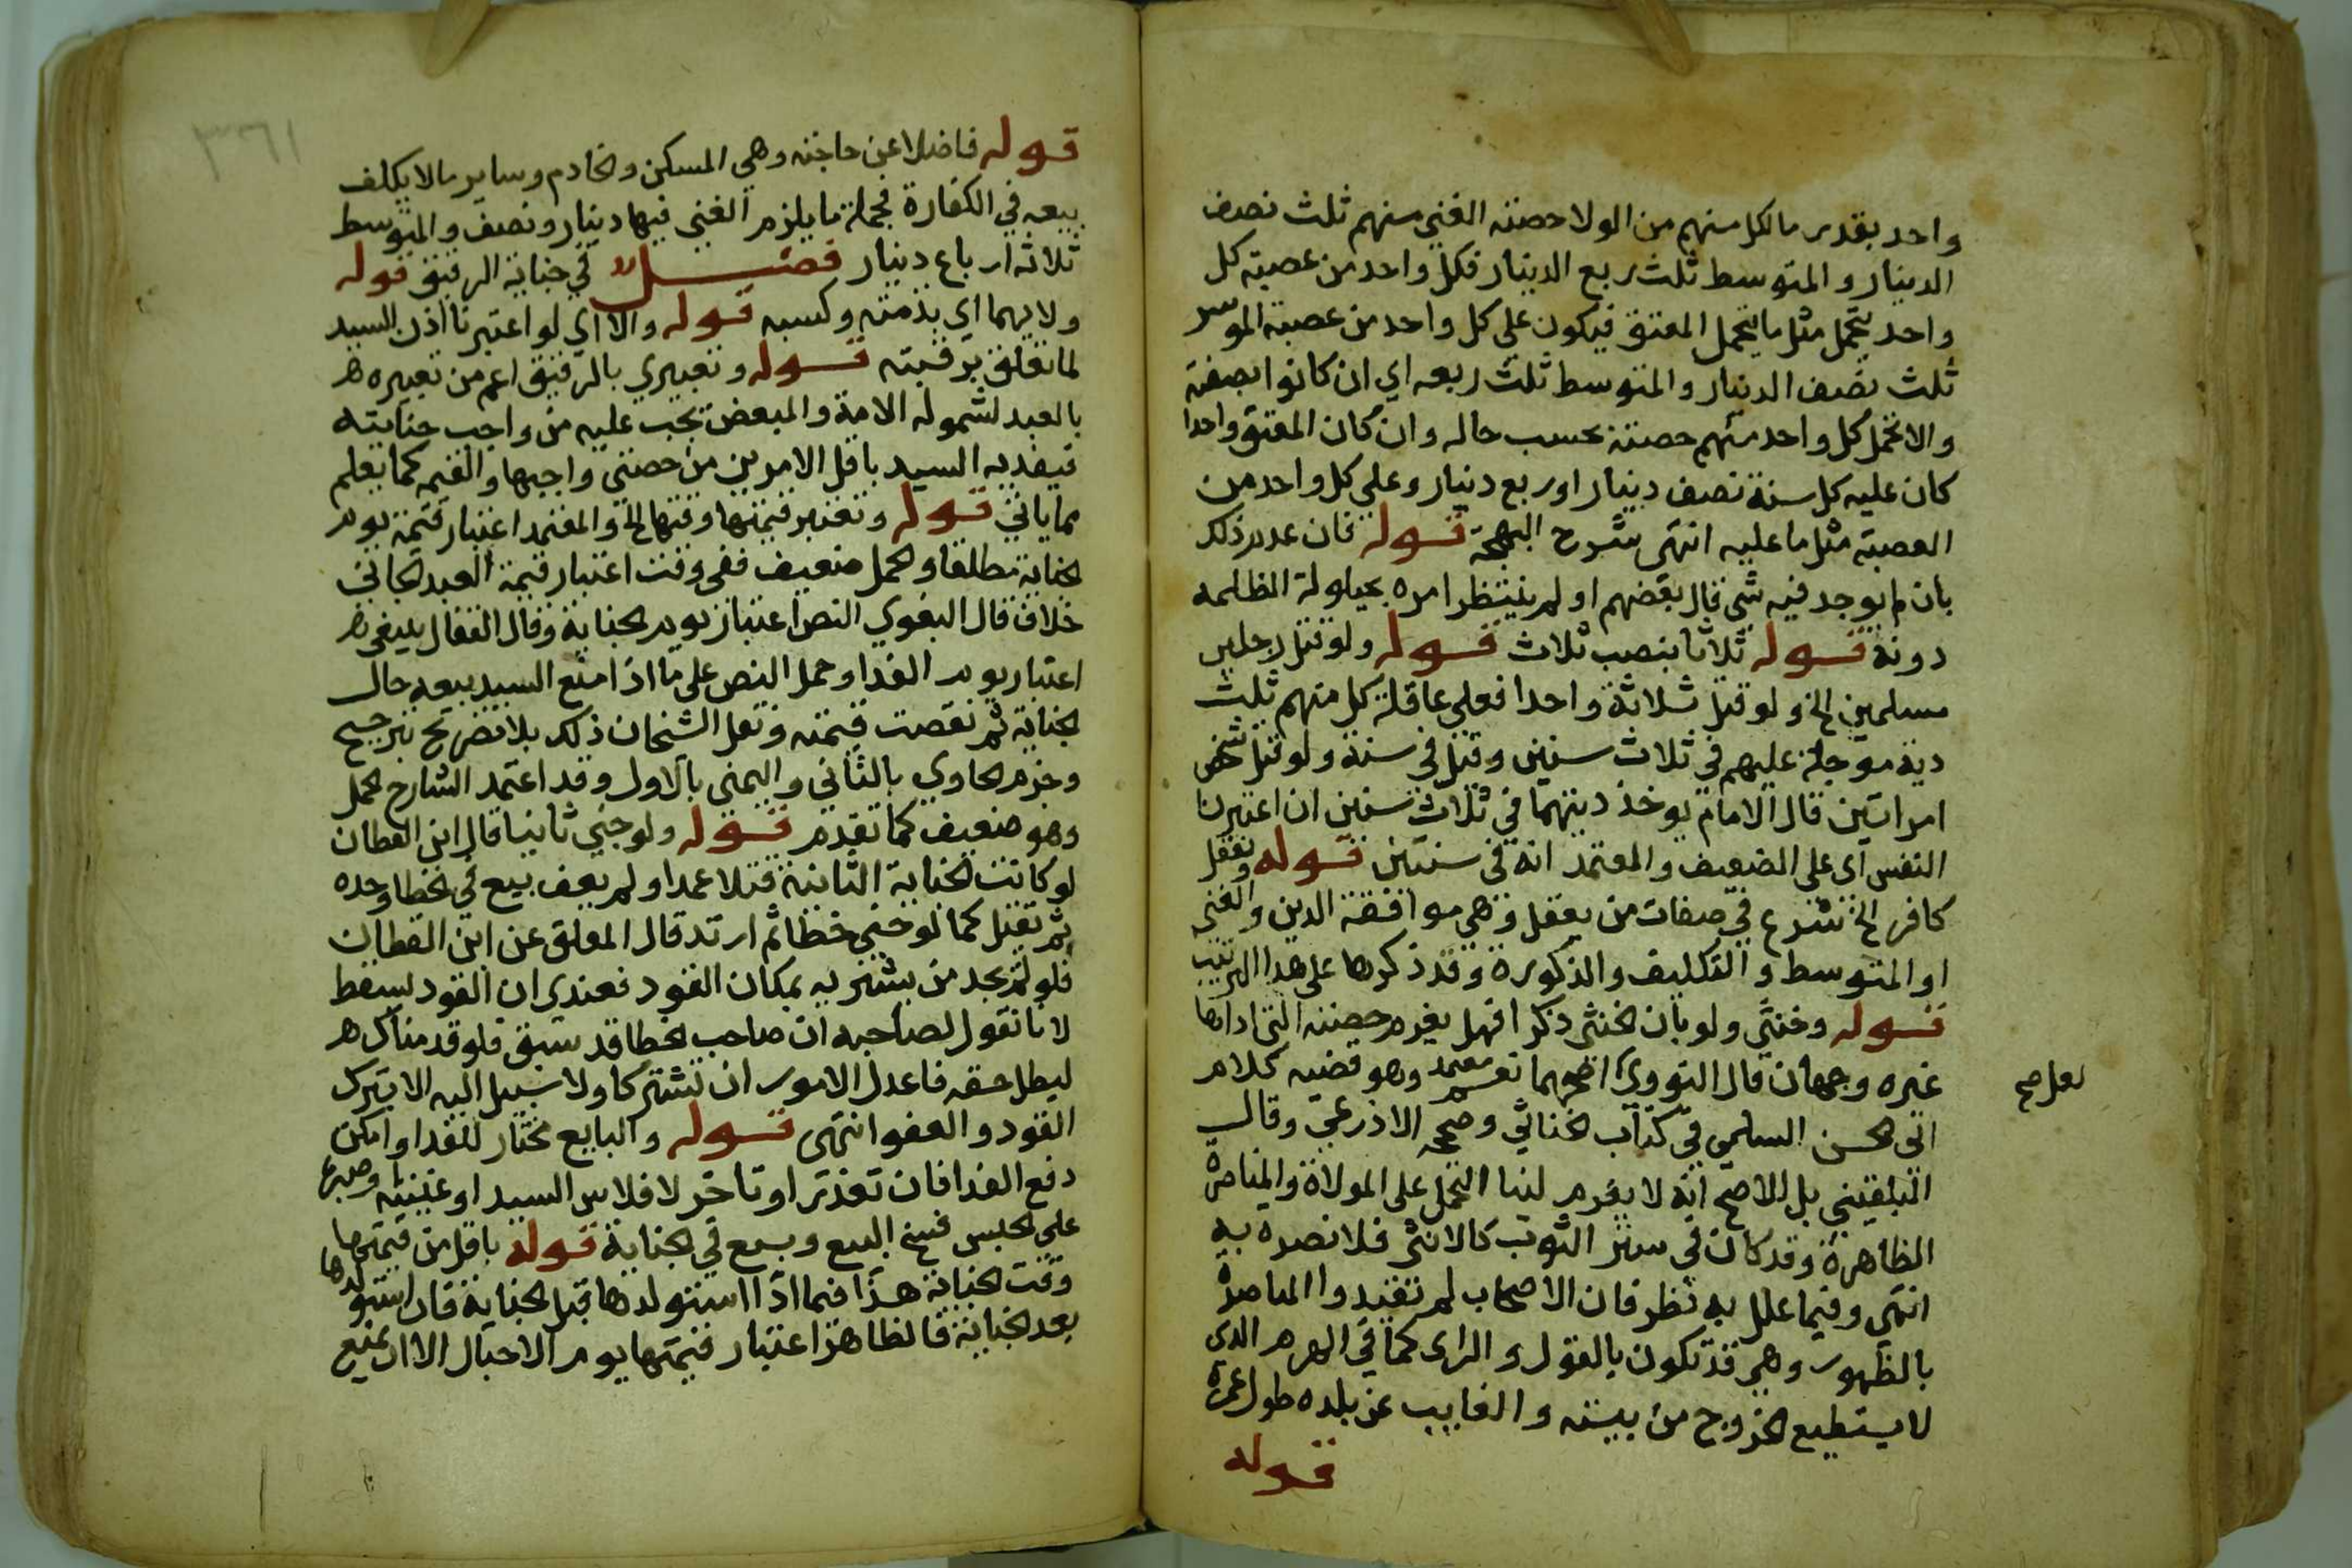 واحد بقدر مالكل منهم من الولا حصته الغني منهم ثلث نصف
الدينار والمتوسط ثلث ربع الدينار فكل واحد من عصبته كل
واحد يتحمل مثل ما يتحمل المعتق فيكون على كل واحد من عصبة الموسر
ثلث نصف الدينار والمتوسط ثلث ربعه اي ان كانوا بصفته
والا تحمل كل واحد منهم حصته بحسب حاله وان كان المعتق واحدا
كان عليه كل سنة نصف دينار او ربع دينار وعلى كل واحد من
العصبة مثل ما عليه انتهى شرح البهجة قوله فان عدم ذلك
بان لم يوجد فيه شي قال بعضهم او لم ينتظر امره بحيلولة الظلمه
دونه قوله ثلاثا بنصب ثلاث قوله ولو قتل رجلين
مسلمين الخ ولو قتل ثلاثة واحدا فعلى عاقلة كل منهم ثلث
دية موجلة عليهم في ثلاث سنين وقيل في سنة ولو قتل شخص
امراتين قال الامام يوخذ ديتهما في ثلاث سنين ان اعتبرنا
النفس اى على الضعيف والمعتمد انه في سنتين قوله ويعقل
كافر الخ شرع في صفات من يعقل وهي موافقة الدين والغنى
او المتوسط والتكليف والذكورة وقد ذكرها على هذا الترتيب
قوله وخنثى ولو بان الخنثى ذكرا فهل يغرم حصته التى اداها
غيره وجهان قال النووي اصحهما نعم معتمد وهو قضية كلام
لعل صح
ابى الحسن السلمي في كتاب الخناثي وصححه الاذرعي وقال
البلقيني بل الاصح انه لا يغرم لبنا التحمل على الموالاة والمناصرة
الظاهرة وقد كان في ستر الثوب كالانثى فلا نصره به
انتهى وفيما علل به نظر فان الاصحاب لم يقيدوا المناصرة
بالظهور وهي قد تكون بالقول والراى كما في الهرم الذى
لا يستطيع الخروج من بيته والغايب عن بلده طول عمره
قوله
٣٦١
قوله فاضلا عن حاجته وهي المسكن والخادم وساير ما لا يكلف
بيعه في الكفارة فجملة ما يلزم الغني فيها دينار ونصف والمتوسط
ثلاثة ارباع دينار فصل في جناية الرقيق قوله
ولا بهما اي بذمته وكسبه قوله والا اي لو اعتبرنا اذن السيد
لما تعلق برقبته قوله وتعبيري بالرقيق اعم من تعبيره هر
بالعبد لشموله الامة والمبعض يجب عليه من واجب جنايته
فيفديه السيد باقل الامرين من حصتي واجبها والقيمة كما يعلم
مما ياتي قوله وتعتبر قيمتها وقتها الخ والمعتمد اعتبار قيمة يوم
الجناية مطلقا والحمل ضعيف ففى وقت اعتبار قيمة العبد الجاني
خلاف قال البغوي النص اعتبار يوم الجناية وقال القفال ينبغي هر
اعتبار يوم الفدا وحمل النص على ما اذا منع السيد بيعه حال
الجناية ثم نقصت قيمته ونقل الشيخان ذلك بلا تصريح بترجيح
وجزم الحاوي بالثاني واليمني بالاول وقد اعتمد الشارح الحمل
وهو ضعيف كما تقدم قوله ولو جني ثانيا قال ابن القطان
لو كانت الجناية الثانية قتلا عمدا ولم يعف بيع في الخطا وحده
ثم يقتل كما لو جني خطا ثم ارتد قال المعلق عن ابن القطان
فلو لم نجد من يشتريه بمكان القود فعندى ان القود يسقط
لانا نقول لصاحبه ان صاحب الخطا قد سبق فلو قدمناك هر
لبطل حقه فاعدل الامور ان تشتركا ولا سبيل اليه الا بترك
القود والعفو انتهى قوله والبايع مختار للفدا وامكن
دفع الفدا فان تعذر او تاخر لافلاس السيد او غيبته وصبره
على الحبس فسخ البيع وبيع في الجناية قوله باقل من قيمتها
وقت الجناية هذا فيما اذا استولدها قبل الجناية فان استولدها
بعد الجناية فالظاهر اعتبار قيمتها يوم الاحبال الا ان يمنع